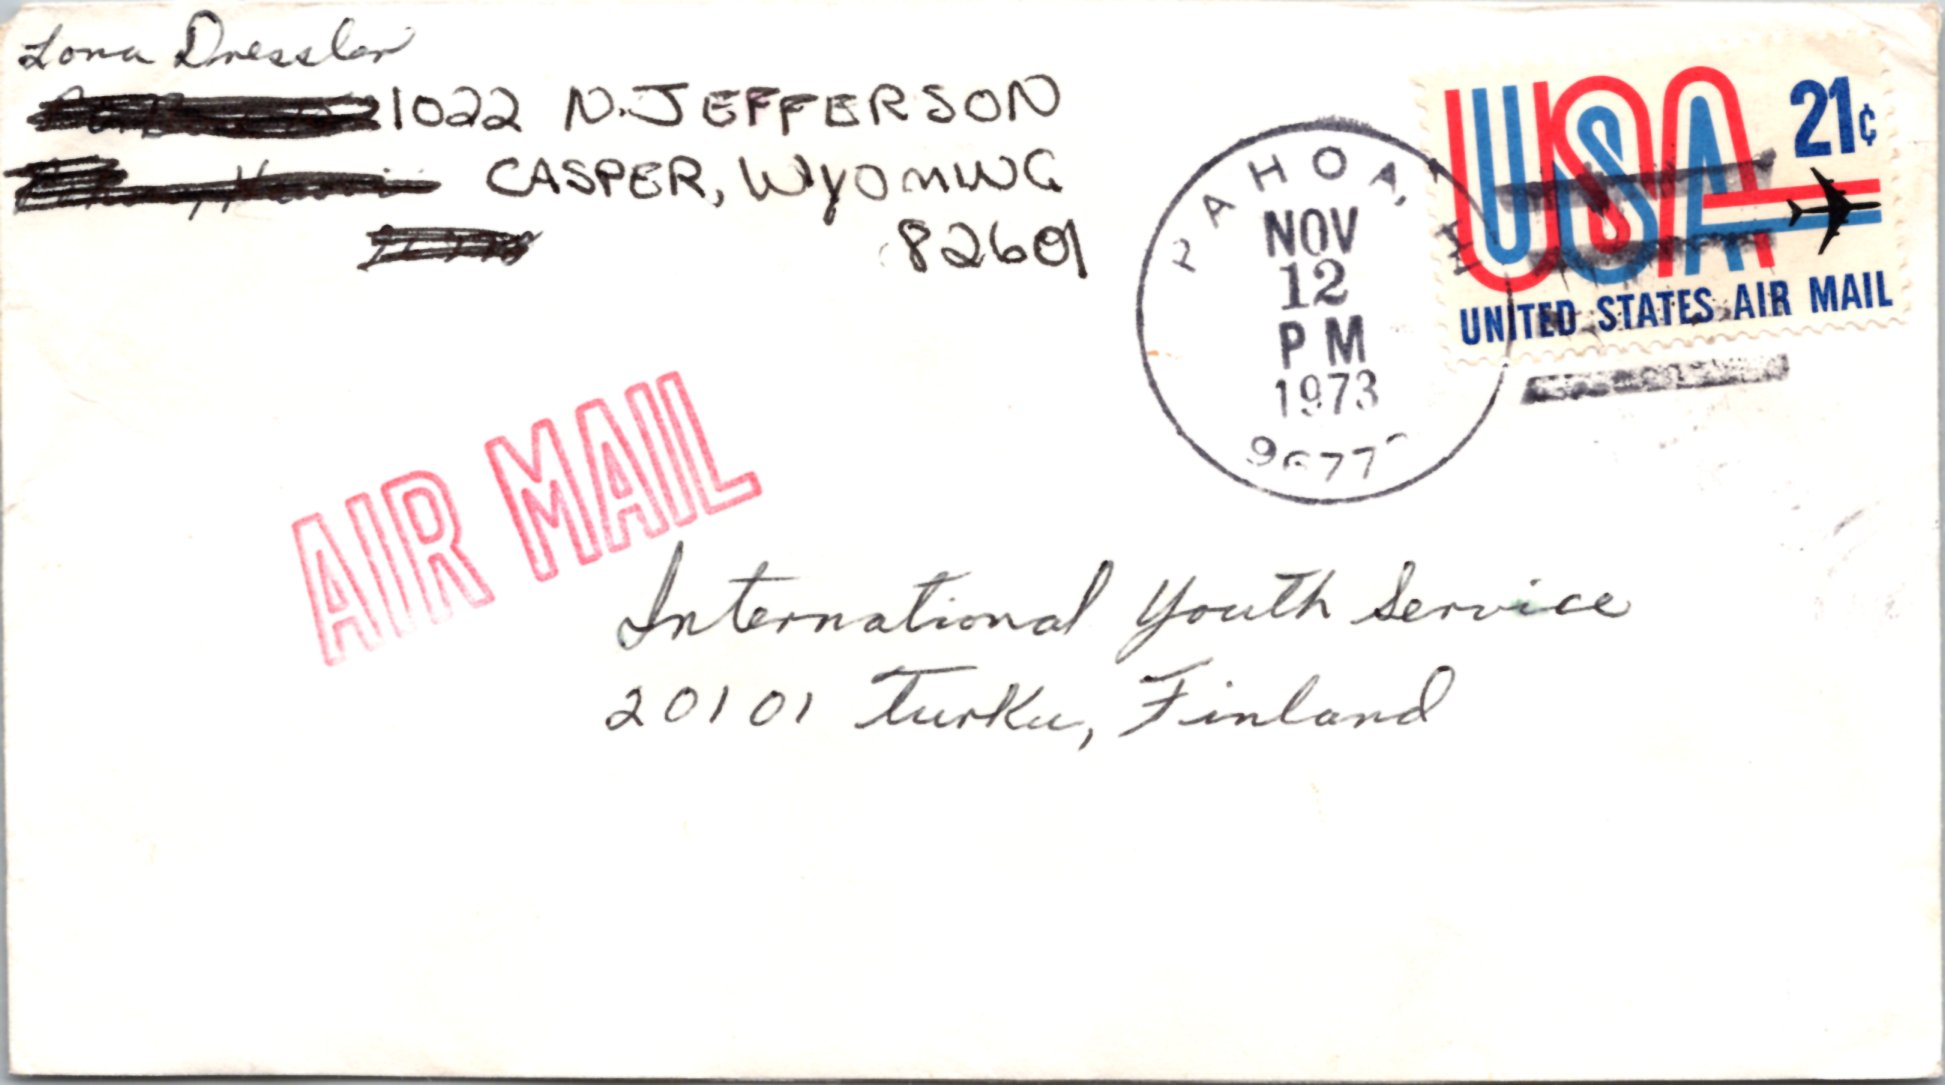 Lona Dressler
1022 N. JEFFERSON
CASPER, WYOMING
82601
PAHOA, HI
NOV
12
PM
1973
9677
USA 21¢
UNITED STATES AIR MAIL
AIR MAIL
International Youth Service
20101 Turku, Finland